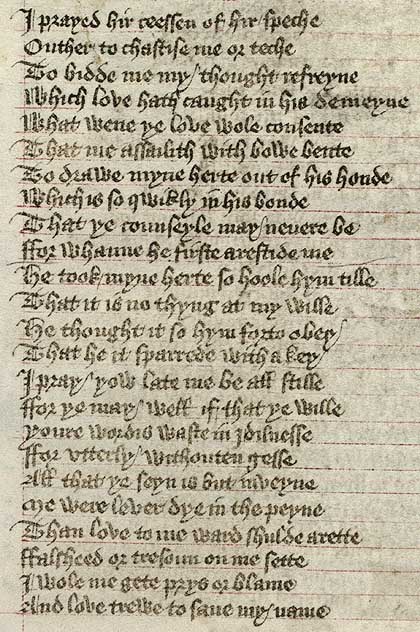 I prayed hir ceessen of hir speche
Outher to chastise me or teche
To bidde me my thought refreyne
Which love hath caught in his demeyne
What wene ye love wole consente
That me assailith with bowe bente
To drawe myne herte out of his honde
Which is so qwikly in his bonde
That ye counseyle may nevere be
ffor whanne he firste arestide me
He took myne herte so hoole hym tille
That it is no thyng at my wille
He thought it so hym forto obey
That he it sparrede with a key
I pray yow late me be all stille
ffor ye may well if that ye wille
Youre wordis waste in idilnesse
ffor utterly withouten gesse
All that ye seyn is but in veyne
Me were lever dye in the peyne
Than love to me ward shulde arette
ffalsheed or tresoun on me sette
I wole me gete prys or blame
And love trewe to save my name